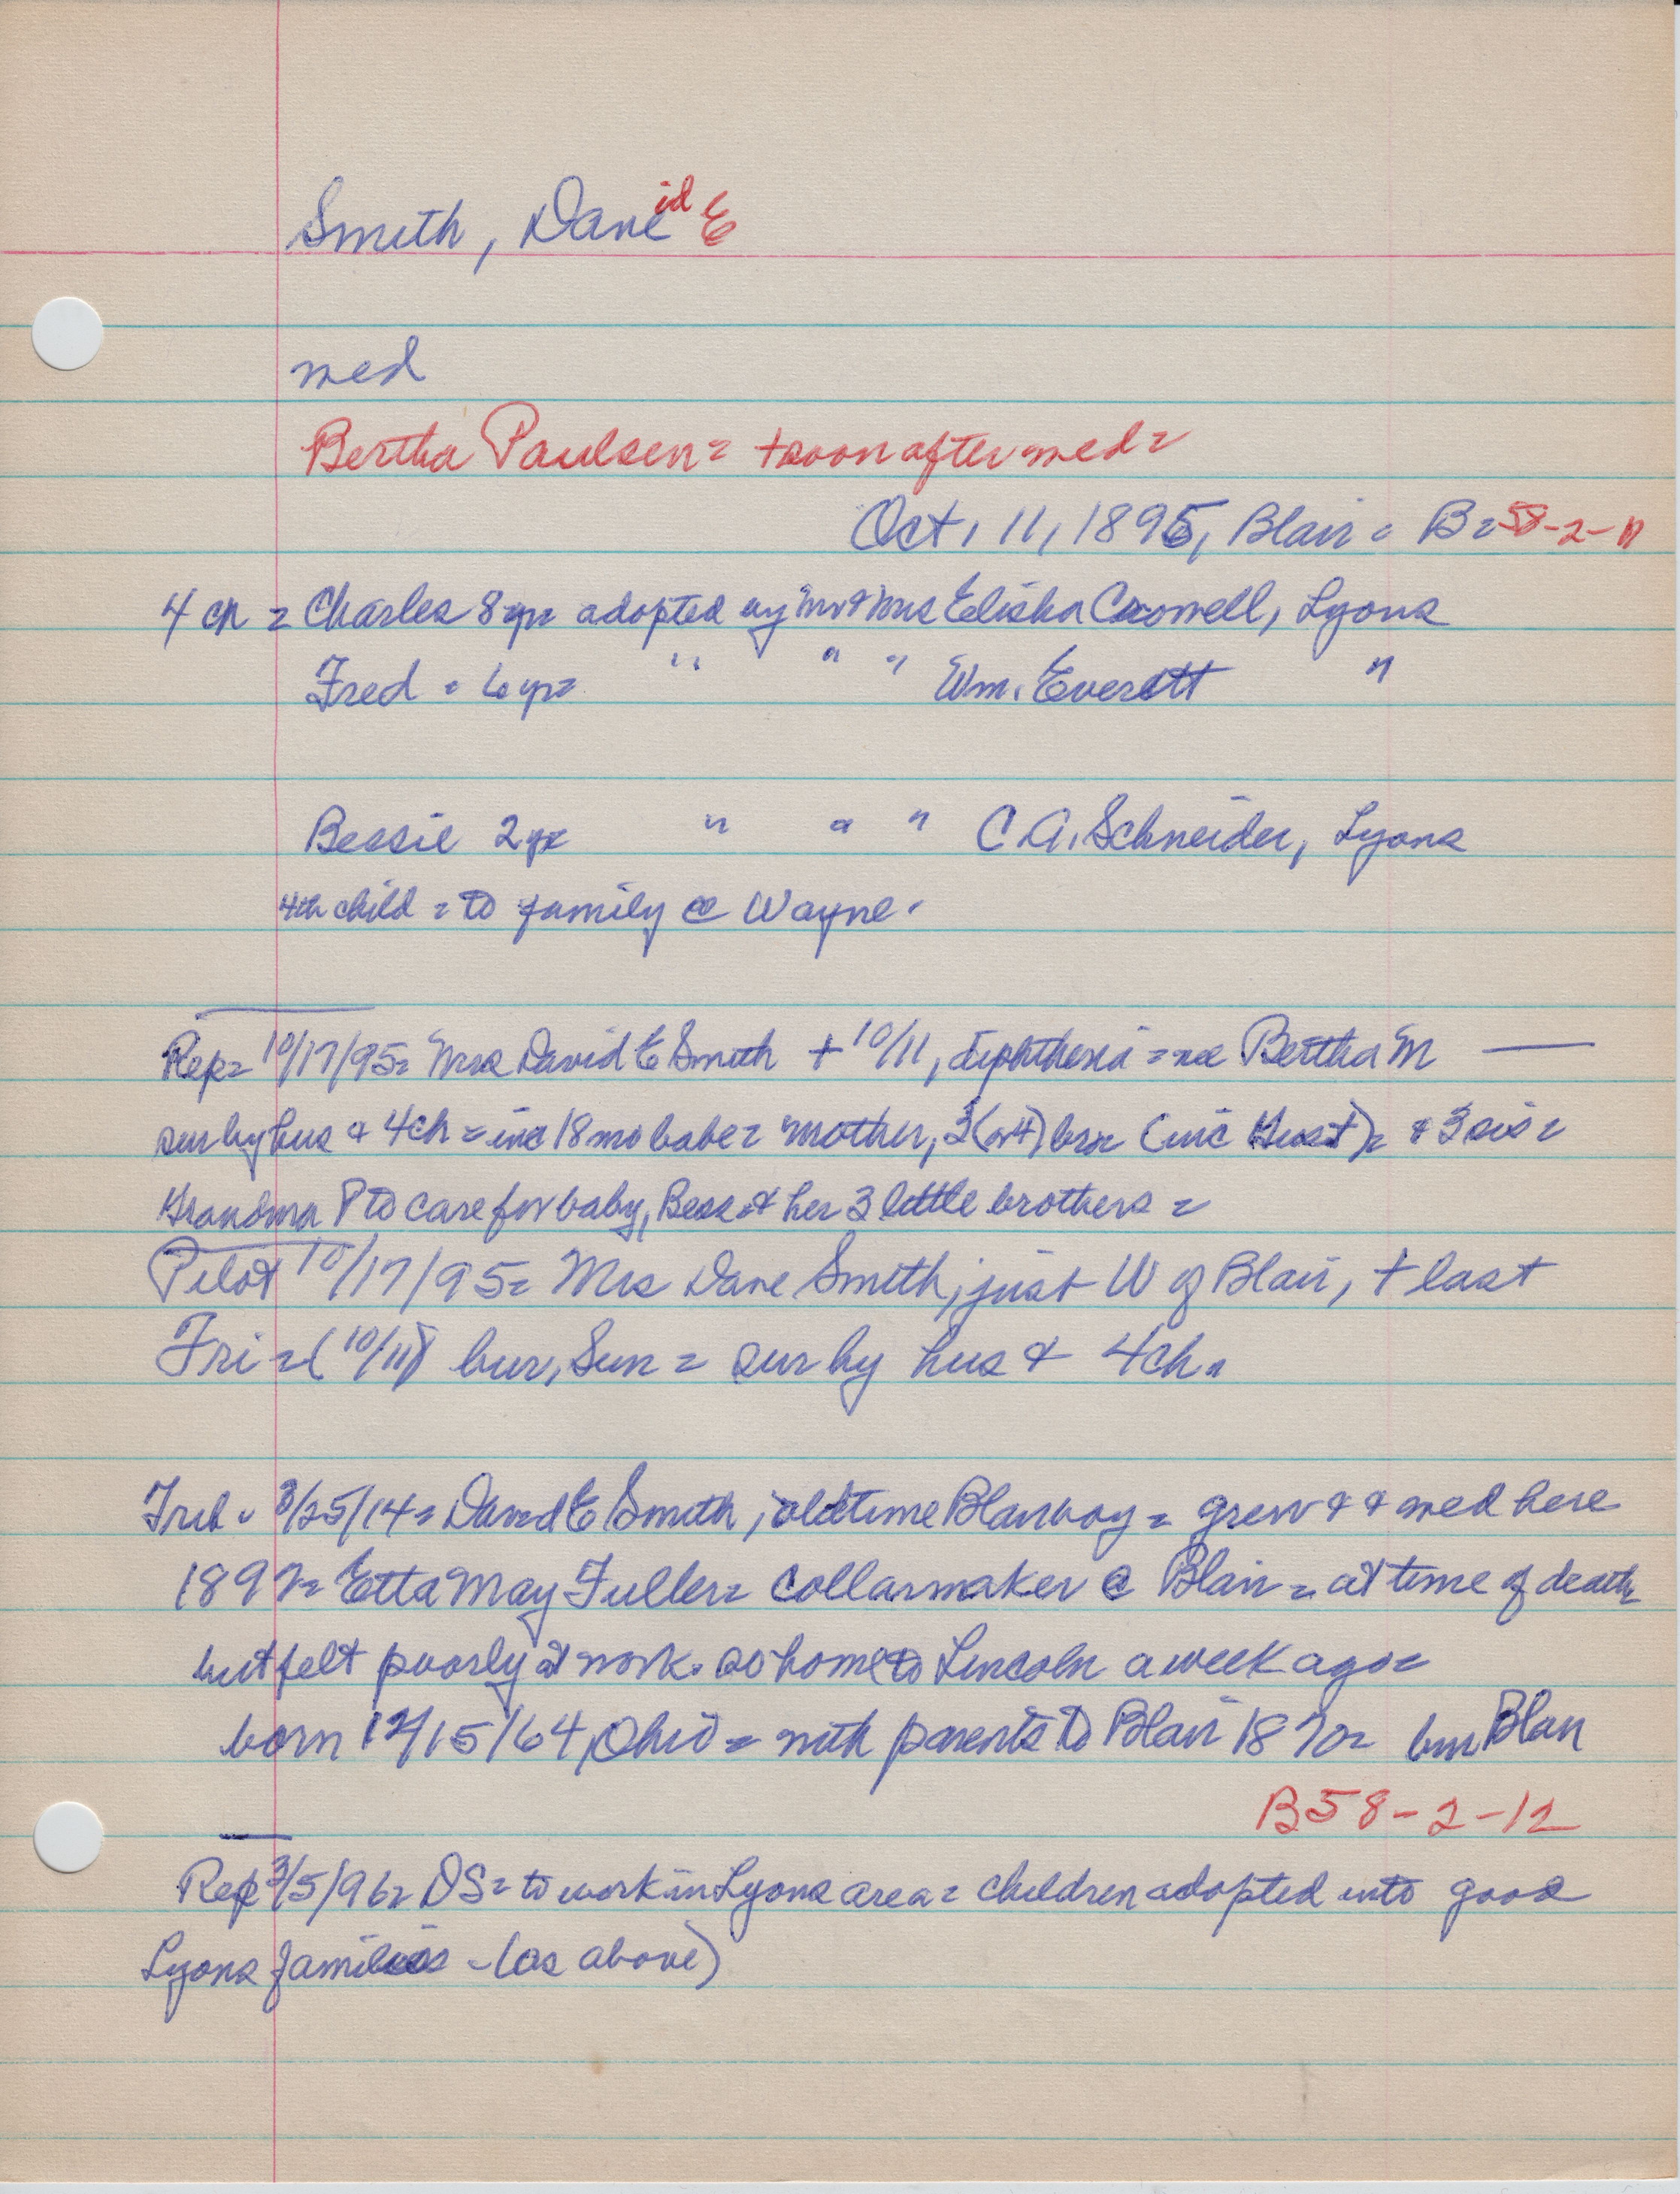 Smith, Dave id E
med
Bertha Paulsen = + soon after med =
Oct, 11, 1895, Blair = B = 58-2-11
4 ch = Charles 8 yr = adopted by Mr & Mrs Elisha Crowell, Lyons
Fred = 6 yr = " " " Wm. Everett "
Bessie 2 yr " " " C.A. Schneider, Lyons
4th child = to family @ Wayne.
Rep = 10/17/95 = Mrs David E Smith + 10/11, diphtheria = nee Bertha M —
sur by hus & 4 ch = inc 18 mo babe = mother, 3 (or 4) bros (inc Gust) = & 3 sis =
Grandma P to care for baby, Bess & her 3 little brothers =
Pilot 10/17/95 = Mrs Dave Smith, just W of Blair, + last
Fri = (10/11) bur, Sun = sur by hus & 4 ch.
Trib = 3/25/14 = David E Smith, oldtime Blair boy = grew & & med here
1897 = Etta May Fuller = collarmaker @ Blair = at time of death
but felt poorly at work so home to Lincoln a week ago =
born 12/15/64, Ohio = with parents to Blair 1870 = bur Blair
B58-2-12
Rep 3/5/96 = DS = to work in Lyons area = children adopted into good
Lyons families - (as above)